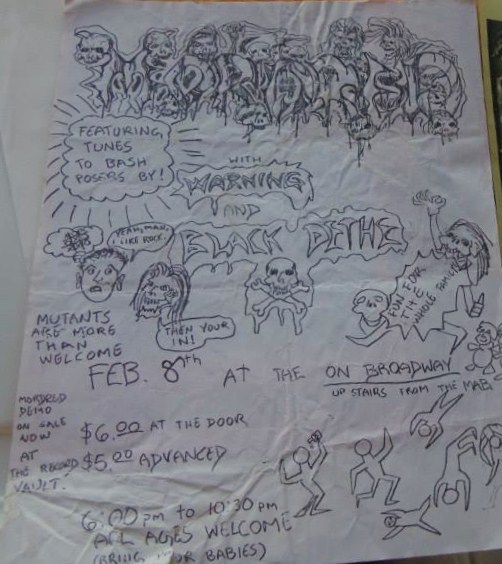 MORDRED
FEATURING,
TUNES
TO BASH
POSERS BY!
WITH
WARNING
AND
BLACK DETHE
YEAH, MAN,
I LIKE ROCK.
THEN YOUR
IN!
FUN FOR
THE
WHOLE FAMILY
MUTANTS
ARE MORE
THAN
WELCOME
FEB. 8th AT THE ON BROADWAY
UP STAIRS FROM THE MAB.
MORDRED
DEMO
ON SALE
NOW
AT
THE RECORD
VAULT.
$6.00 AT THE DOOR
$5.00 ADVANCED
6:00 PM to 10:30 PM
ALL AGES WELCOME
(BRING YOUR BABIES)